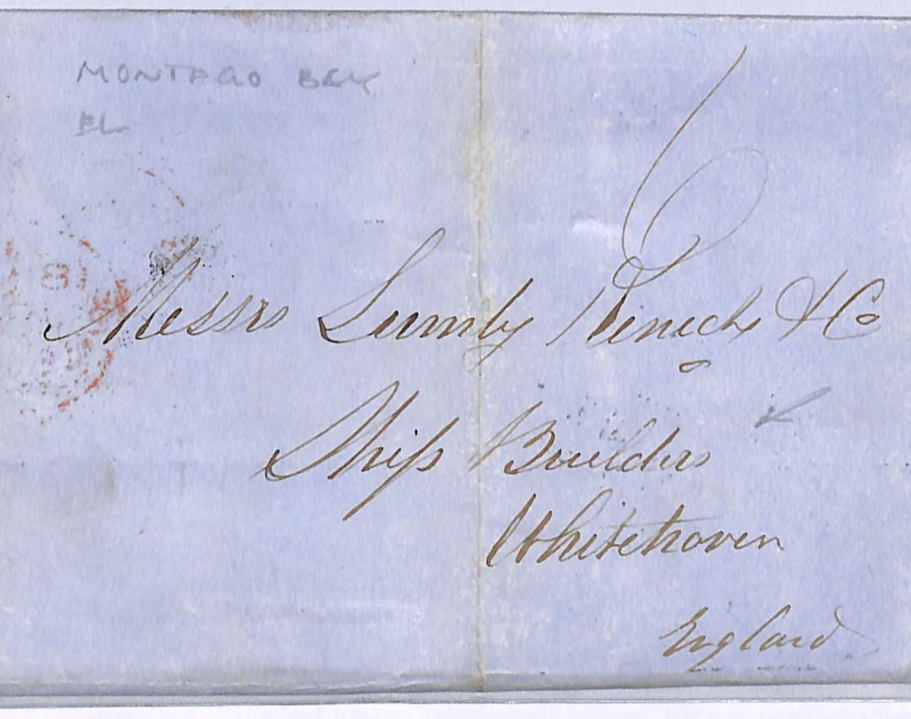 MONTEGO BAY
EL
6
8
Messrs Lumby Renech & Co
Ship Builders
Whitehaven
England